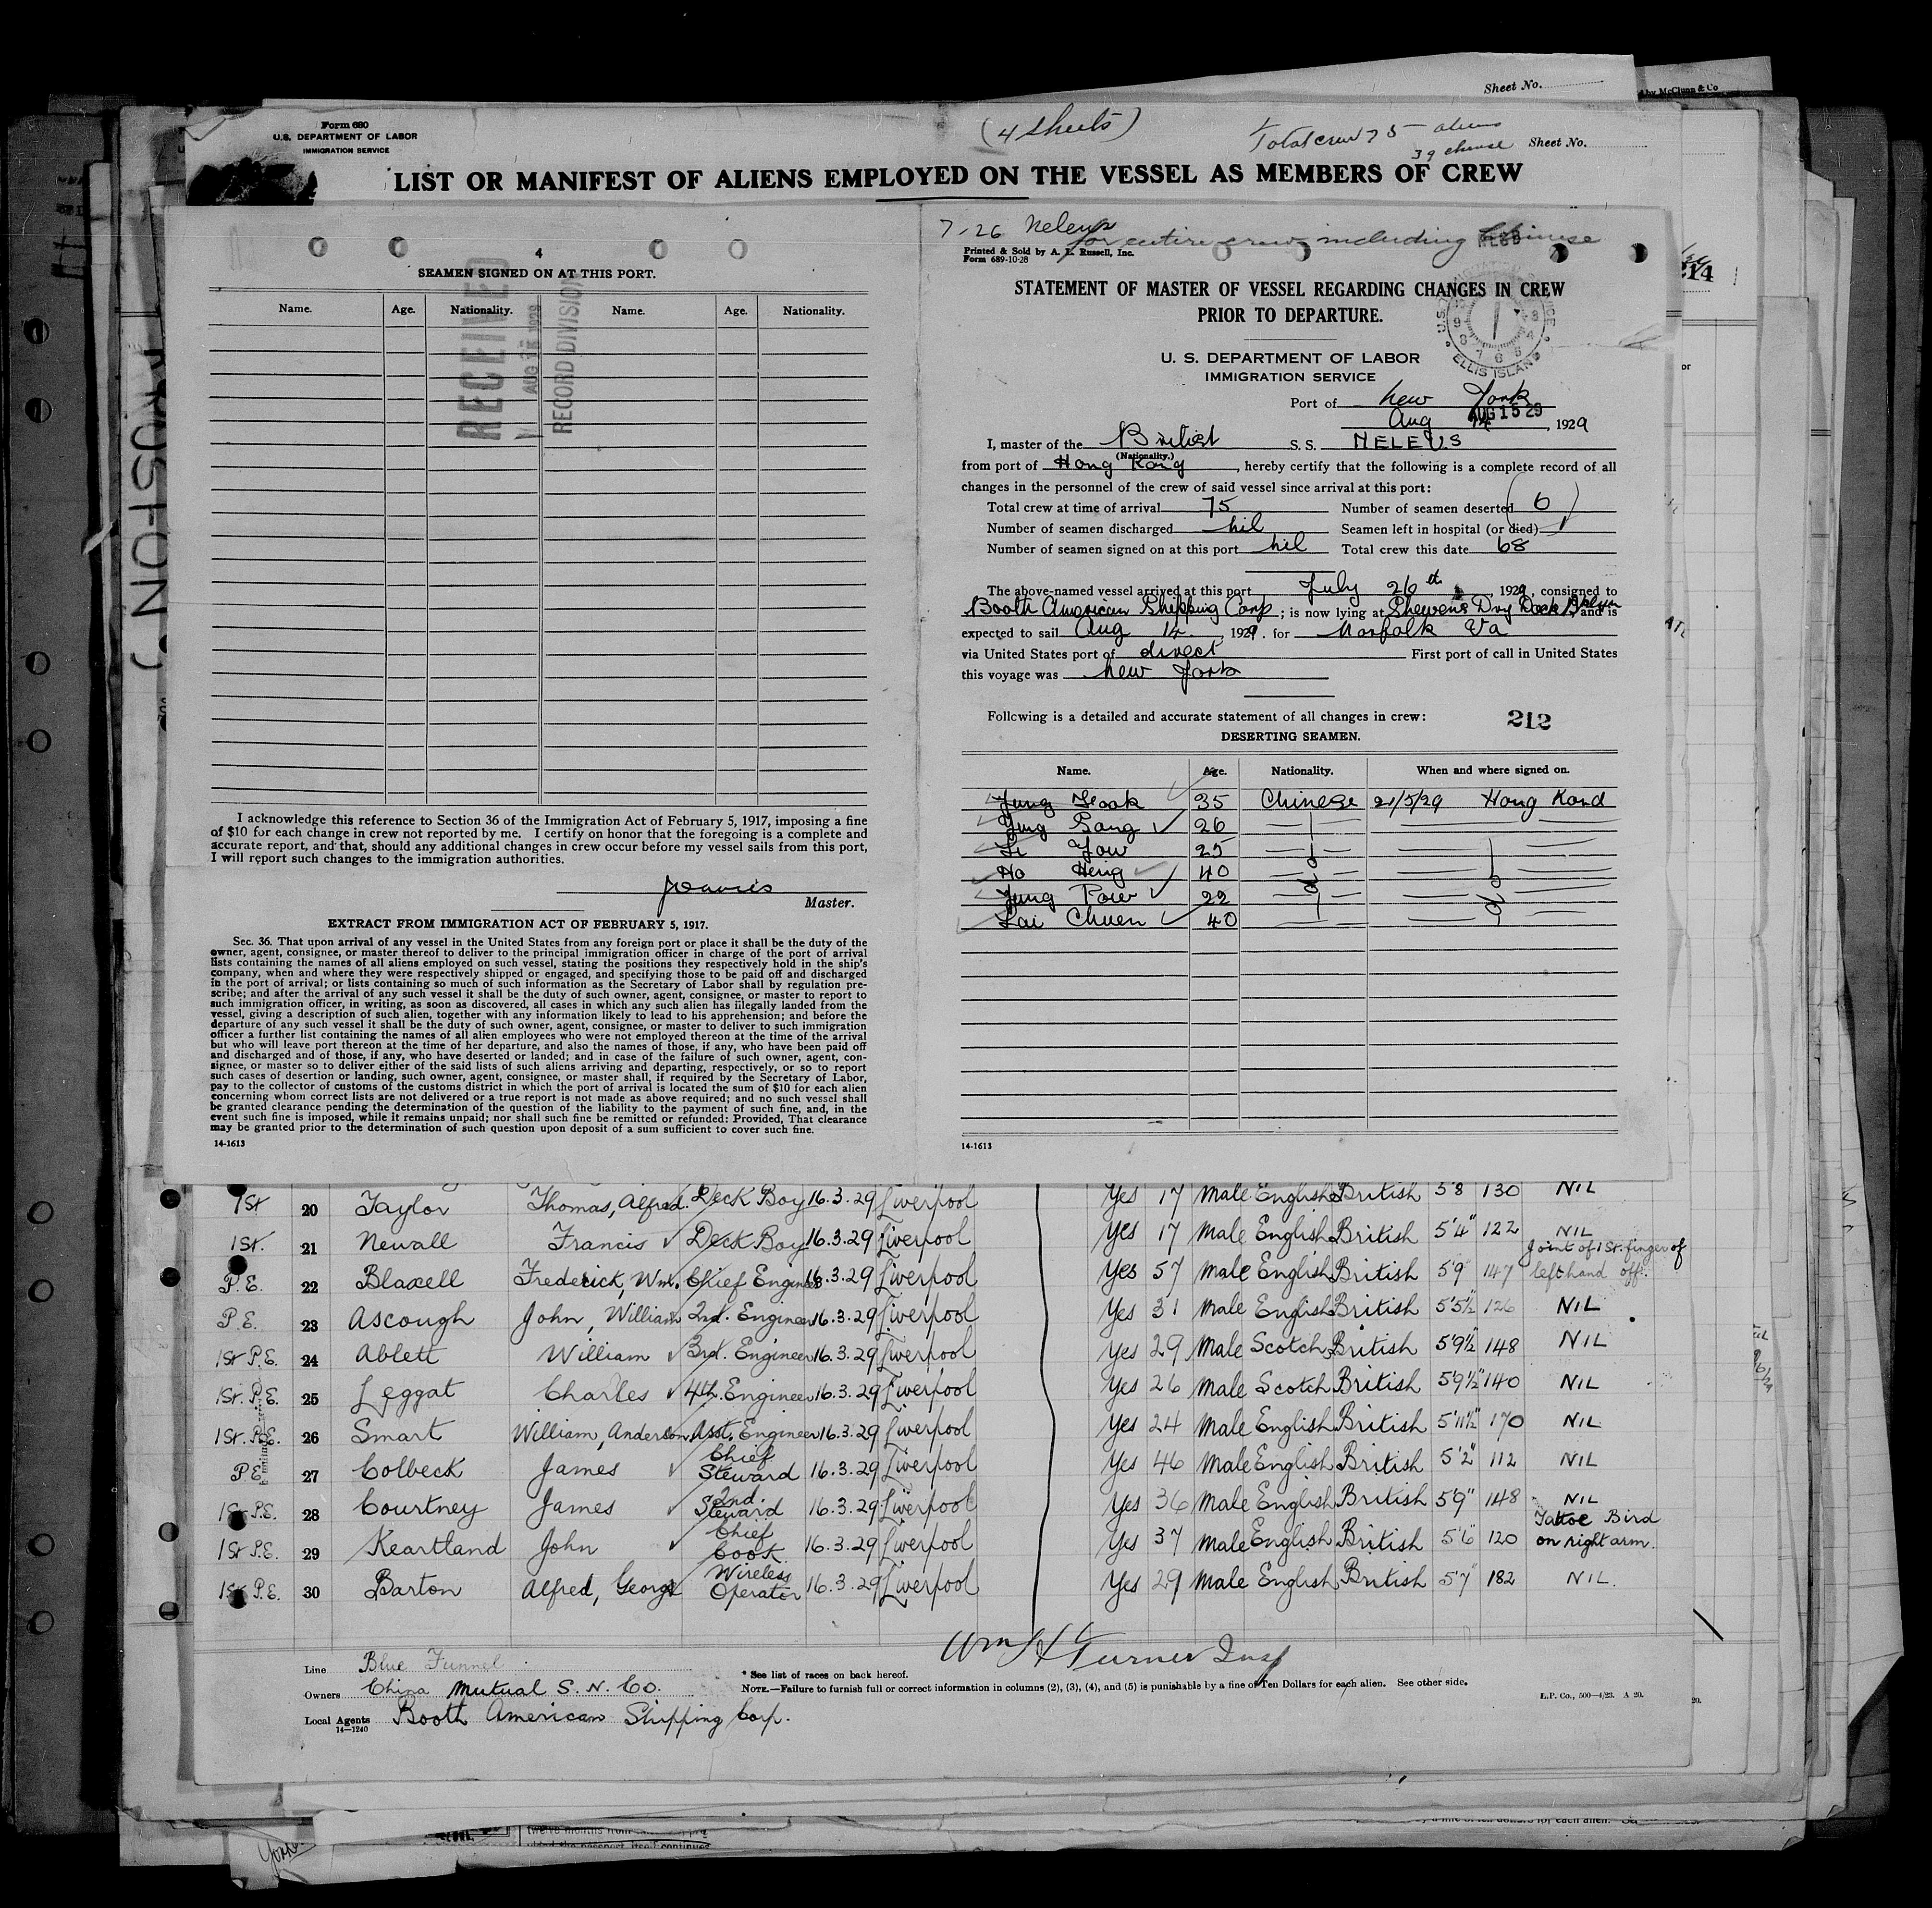 Sheet No.
by McClunn & Co
Form 680
U.S. DEPARTMENT OF LABOR
IMMIGRATION SERVICE
(4 Sheets)
Total crew 75 aliens
39 chinese
Sheet No.
LIST OR MANIFEST OF ALIENS EMPLOYED ON THE VESSEL AS MEMBERS OF CREW
4
SEAMEN SIGNED ON AT THIS PORT.
Name. Age. Nationality. Name. Age. Nationality.
RECEIVED
AUG 15 1929
RECORD DIVISION
I acknowledge this reference to Section 36 of the Immigration Act of February 5, 1917, imposing a fine
of $10 for each change in crew not reported by me. I certify on honor that the foregoing is a complete and
accurate report, and that, should any additional changes in crew occur before my vessel sails from this port,
I will report such changes to the immigration authorities.
Master.
EXTRACT FROM IMMIGRATION ACT OF FEBRUARY 5, 1917.
Sec. 36. That upon arrival of any vessel in the United States from any foreign port or place it shall be the duty of the
owner, agent, consignee, or master thereof to deliver to the principal immigration officer in charge of the port of arrival
lists containing the names of all aliens employed on such vessel, stating the positions they respectively hold in the ship's
company, when and where they were respectively shipped or engaged, and specifying those to be paid off and discharged
in the port of arrival; or lists containing so much of such information as the Secretary of Labor shall by regulation pre-
scribe; and after the arrival of any such vessel it shall be the duty of such owner, agent, consignee, or master to report to
such immigration officer, in writing, as soon as discovered, all cases in which any such alien has illegally landed from the
vessel, giving a description of such alien, together with any information likely to lead to his apprehension; and before the
departure of any such vessel it shall be the duty of such owner, agent, consignee, or master to deliver to such immigration
officer a further list containing the names of all alien employees who were not employed thereon at the time of the arrival
but who will leave port thereon at the time of her departure, and also the names of those, if any, who have been paid off
and discharged and of those, if any, who have deserted or landed; and in case of the failure of such owner, agent, con-
signee, or master so to deliver either of the said lists of such aliens arriving and departing, respectively, or so to report
such cases of desertion or landing, such owner, agent, consignee, or master shall, if required by the Secretary of Labor,
pay to the collector of customs of the customs district in which the port of arrival is located the sum of $10 for each alien
concerning whom correct lists are not delivered or a true report is not made as above required; and no such vessel shall
be granted clearance pending the determination of the question of the liability to the payment of such fine, and, in the
event such fine is imposed, while it remains unpaid; nor shall such fine be remitted or refunded: Provided, That clearance
may be granted prior to the determination of such question upon deposit of a sum sufficient to cover such fine.
14-1613
7-26 Neleus
for entire crew including Chinese
Printed & Sold by A. L. Russell, Inc.
Form 689-10-28
STATEMENT OF MASTER OF VESSEL REGARDING CHANGES IN CREW
PRIOR TO DEPARTURE.
ELLIS ISLAND
U. S. DEPARTMENT OF LABOR
IMMIGRATION SERVICE
Port of New York
AUG 15 29
Aug 14, 1929
I, master of the British S. S. NELEUS
(Nationality.)
from port of Hong Kong, hereby certify that the following is a complete record of all
changes in the personnel of the crew of said vessel since arrival at this port:
Total crew at time of arrival 75 Number of seamen deserted 6
Number of seamen discharged nil Seamen left in hospital (or died) 1
Number of seamen signed on at this port nil Total crew this date 68
The above-named vessel arrived at this port July 26th, 1929, consigned to
Booth American Shipping Corp; is now lying at Shewens Dry Dock Bklyn, and is
expected to sail Aug 14, 1929. for Norfolk Va
via United States port of direct First port of call in United States
this voyage was New York
Following is a detailed and accurate statement of all changes in crew:
212
DESERTING SEAMEN.
Name. Age. Nationality. When and where signed on.
Jung Kook 35 Chinese 21/5/29 Hong Kond
Jung Sang 26
Li Yow 25
Ho Heng 40 do do
Jung Pow 22
Lai Chuen 40
14-1613
214
1st 20 Taylor Thomas, Alfred. Deck Boy 16.3.29 Liverpool Yes 17 Male English British 5'8 130 NIL
1st. 21 Newall Francis Deck Boy 16.3.29 Liverpool Yes 17 Male English British 5'4" 122 NIL
P.E. 22 Blaxell Frederick, Wm. Chief Engineer 16.3.29 Liverpool Yes 57 Male English British 5'9 147 Joint of 1st. finger of left hand off.
P.E. 23 Ascough John, William 2nd. Engineer 16.3.29 Liverpool Yes 31 Male English British 5'5½" 126 NIL
1st P.E. 24 Ablett William 3rd. Engineer 16.3.29 Liverpool Yes 29 Male Scotch British 5'9½ 148 NIL
1st. P.E. 25 Leggat Charles 4th. Engineer 16.3.29 Liverpool Yes 26 Male Scotch British 5'9½" 140 NIL
1st. P.E. 26 Smart William, Anderson. Asst. Engineer 16.3.29 Liverpool Yes 24 Male English British 5'11½" 170 NIL
P.E. 27 Colbeck James Chief Steward 16.3.29 Liverpool Yes 46 Male English British 5'2" 112 NIL
1st P.E. 28 Courtney James 2nd. Steward 16.3.29 Liverpool Yes 36 Male English British 5'9" 148 NIL
1st P.E. 29 Keartland John Chief Cook. 16.3.29 Liverpool Yes 37 Male English British 5'6" 120 Tattoe Bird on right arm.
1st P.E. 30 Barton Alfred, George Wireless Operator 16.3.29 Liverpool Yes 29 Male English British 5'7 182 NIL.
Wm H Turner Insp
Line Blue Funnel
Owners China Mutual S. N. Co.
Local Agents Booth American Shipping Corp.
14-1240
* See list of races on back hereof.
NOTE.—Failure to furnish full or correct information in columns (2), (3), (4), and (5) is punishable by a fine of Ten Dollars for each alien. See other side.
L.P. Co., 500-4/23. A 20.
20.